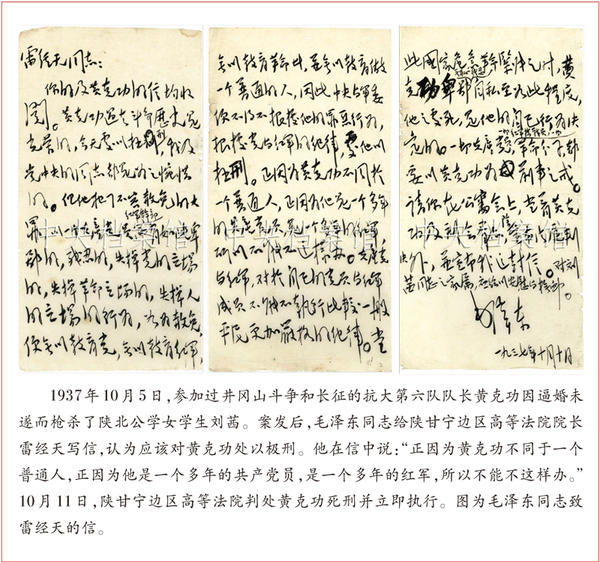 雷经天同志：
你的及黄克功的信均收
阅。黄克功过去斗争历史是
光荣的，今天处以极刑，我及
党中央的同志都是为之惋惜
的。但他犯了不容赦免的大
罪，以一个共产党员红军干部而有如此卑
鄙的，残忍的，失掉党的立场
的，失掉革命立场的，失掉人
的立场的行为，如为赦免，
便无以教育党，无以教育红军，
无以教育革命者，并无以教育做
一个普通的人，因此中央与军委
便不得不根据他的罪恶行为，
根据党与红军的纪律，处他以
极刑。正因为黄克功不同于
一个普通人，正因为他是一个多年
的共产党员，是一个多年的红军，
所以不能不这样办。共产党
与红军，对于自己的党员与红军
成员不能不执行比较一般
平民更加严格的纪律。当
此国家危急革命紧张之时，黄
克功卑鄙无耻残忍自私至如此程度，
他之处死，是他的自己行为决
定的。一切共产党员，一切红军指战员，一切革命分子，都
要以黄克功为前车之戒。
请你在公审会上，当着黄克
功及到会群众，除宣布法庭判
决外，并宣布我这封信。对刘
茜同志之家属，应给以安慰与抚恤。
毛泽东
一九三七年十月十日
中央档案馆
中央档案馆
中央档案馆
1937年10月5日，参加过井冈山斗争和长征的抗大第六队队长黄克功因逼婚未
遂而枪杀了陕北公学女学生刘茜。案发后，毛泽东同志给陕甘宁边区高等法院院长
雷经天写信，认为应该对黄克功处以极刑。他在信中说：“正因为黄克功不同于一个
普通人，正因为他是一个多年的共产党员，是一个多年的红军，所以不能不这样办。”
10月11日，陕甘宁边区高等法院判处黄克功死刑并立即执行。图为毛泽东同志致
雷经天的信。